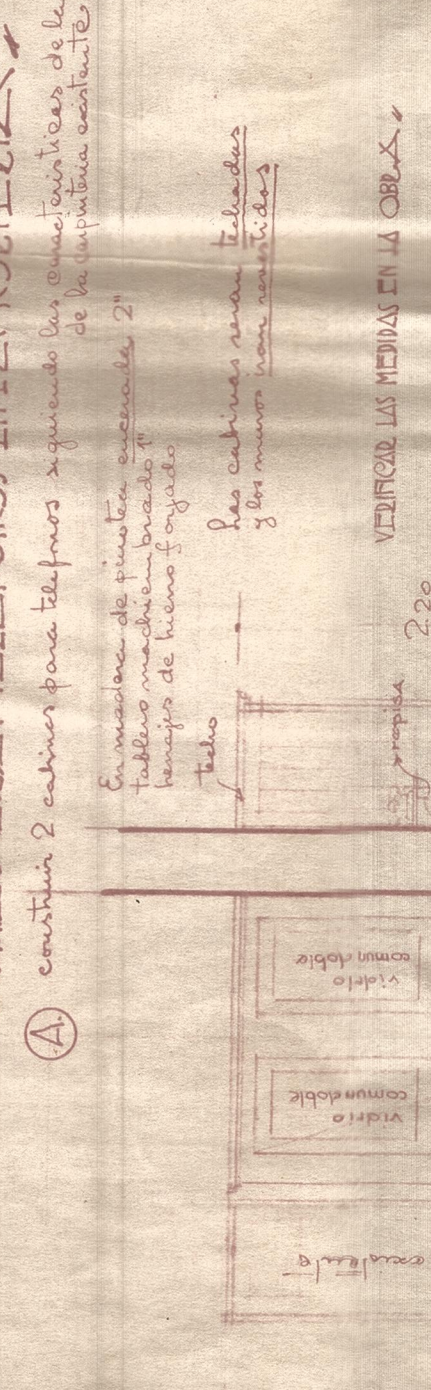 A. construir 2 cabinas para telefonos siguiendo las caracteristicas de la
de la carpinteria existente
En madera de pinotea encerada 2"
tablero machiembrado 1"
herrajes de hierro forjado
Las cabinas seran techadas
y los muros iran revestidos
techo
VERIFICAR LAS MEDIDAS EN LA OBRA.
repisa
2.20
vidrio
comun doble
vidrio
comun doble
existente